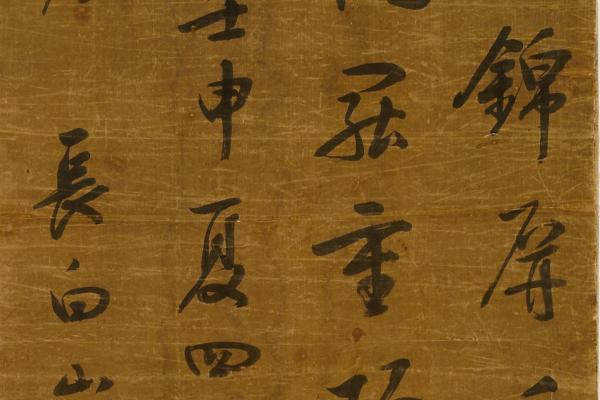 錦屏
重
壬申夏四
長白山